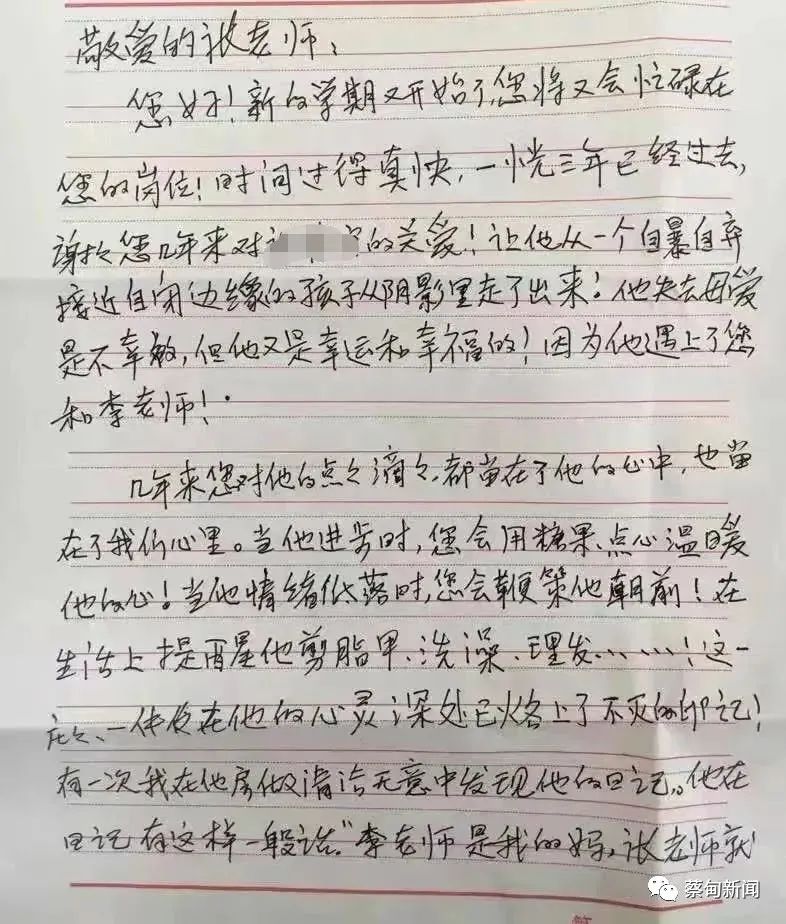 敬爱的张老师：
您好！新的学期又开始了，您将又会忙碌在
您的岗位！时间过得真快，一恍三年已经过去，
谢谢您几年来对的关爱！让他从一个自暴自弃
接近自闭边缘的孩子从阴影里走了出来！他失去母爱
是不幸的，但他又是幸运和幸福的！因为他遇上了您
和李老师！
几年来您对他的点々滴々，都留在了他的心中，也留
在了我们心里。当他进步时，您会用糖果、点心温暖
他的心！当他情绪低落时，您会鞭策他朝前！在
生活上提醒他剪脂甲、洗澡、理发……！这一
庄々、一件件在他的心灵深处已烙上了不灭的印记！
有一次我在他房做清洁无意中发现他的日记。他在
日记有这样一段话。“李老师是我的妈，张老师就
蔡甸新闻